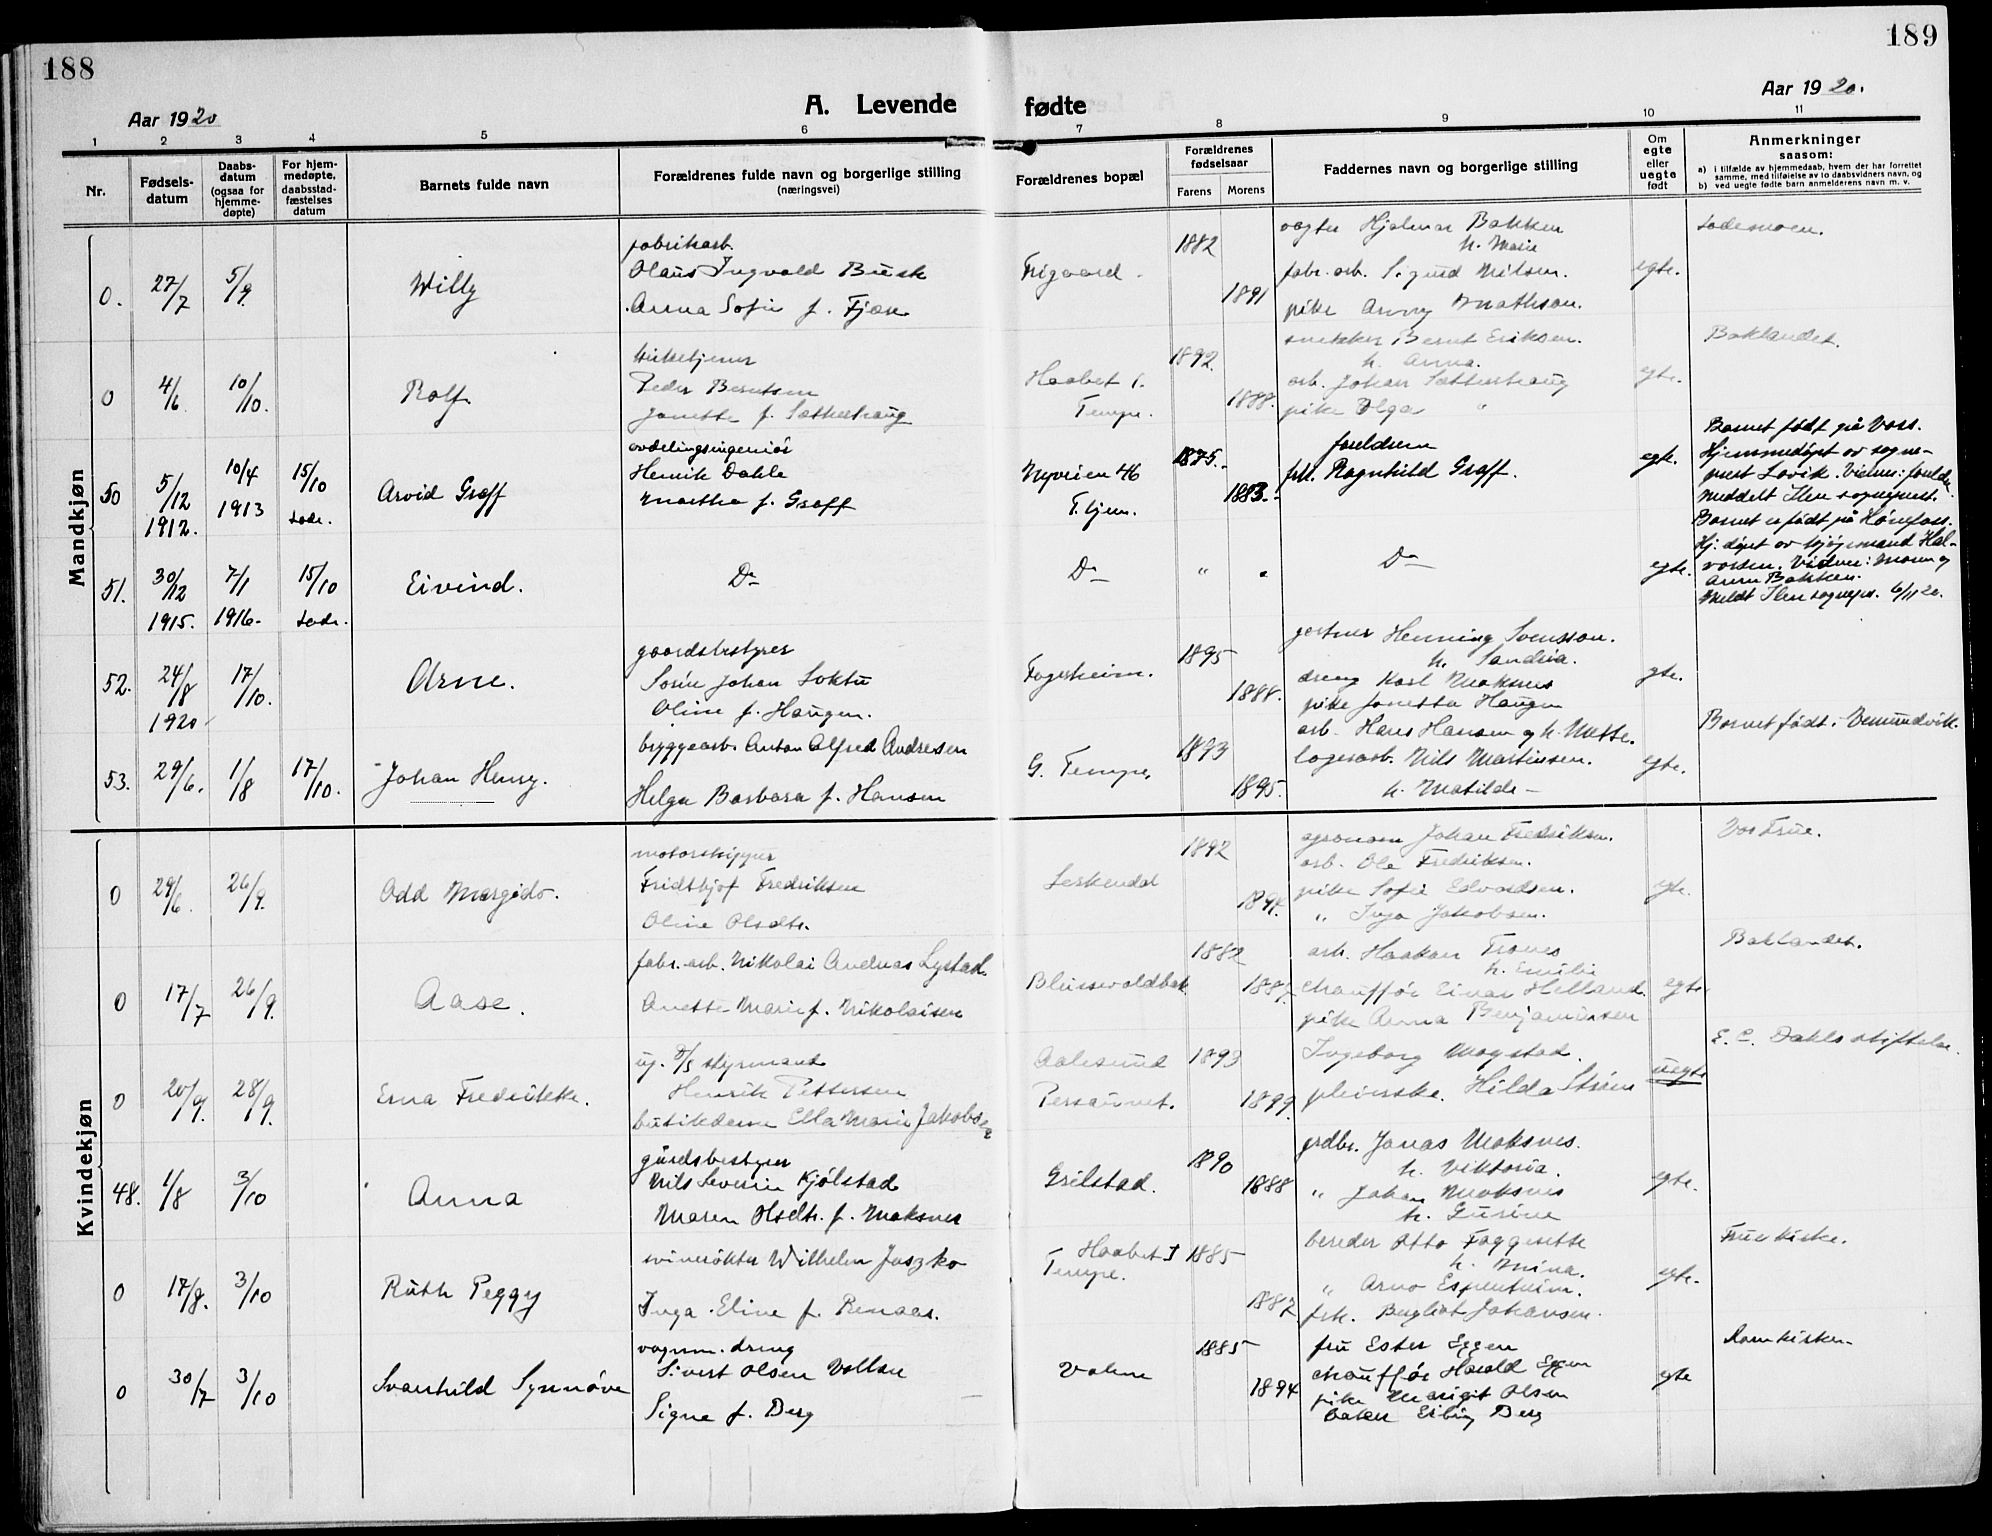 188
189
Aar 1920
A. Levende fødte
Aar 1920.
1 2 3 4 5 6 7 8 9 10 11
Nr.
Fødsels-
datum
Daabs-
datum
(ogsaa for
hjemme-
døpte)
For hjem-
medøpte,
daabsstad-
fæstelses
datum
Barnets fulde navn
Forældrenes fulde navn og borgerlige stilling
(næringsvei)
Forældrenes bopæl
Forældrenes
fødselsaar
Farens Morens
Faddernes navn og borgerlige stilling
Om
egte
eller
uegte
født
Anmerkninger
saasom:
a) i tilfælde av hjemmedaab, hvem der har forrettet
samme, med tilføielse av to daabsvidners navn, og
b) ved uegte fødte barn anmelderens navn m. v.
Mandkjøn
0. 27/7 5/9 Willy
fabrikarb.
Olaus Ingvald Busk
Anna Sofie f. Fjæse
Frigaard
1882
1891
vogter Hjalmar Bakken
h. Marie
fabr. arb. Sigurd Nilsen.
pike Anny Mathson.
egte.
Lademoen.
0 4/6 10/10. Rolf
kirketjener
Peder Berntsen
Janette f. Sætherhaug
Haabet i.
Tempe.
1892.
1888.
snekker Bernt Eriksen.
h. Anna.
arb. Johan Sætterhaug
pike Olga "
egte.
Baklandet.
50 5/12 1912. 10/4 1913 15/10 Lade. Arvid Graff
avdelingsingeniør
Henrik Dahle
Martha f. Graff
Nyveien 46
T.hjem.
1875.
1883.
foreldrene
frk. Ragnhild Graff.
egte.
Barnet født på Voss.
Hjemmedøpt av sogne-
prest Lavik. Vidner: foreldr.
Meddelt Ilen sogneprest.
51. 30/12 1915. 7/1 1916. 15/10 Lade. Eivind.
Do
Do
"
Do
egte.
Barnet er født på Hønefoss.
Hj: døpt av Halvorsen. Vidner: Moren og
Anne Bakken.
Meldt Ilen sognepr. 6/11 20.
52. 24/8 1920 17/10. Arne.
gaardsbestyrer
Sorin Johan Loktu
Oline f. Haugen.
Fagerheim.
1895
1888.
gartner Henning Svensson.
h. Sandria.
dreng Karl Moksnes
pike Janetta Haugen
egte.
53. 29/6. 1/8 17/10. Johan Henry.
bryggearb. Anton Alfred Andresen
Helga Barbara f. Hansen
G. Tempe,
1893
1895.
arb. Hans Hansen og h. Mette.
lagerarb. Nils Martinsen.
h. Matilde
egte.
Barnet født i Vemundvik.
Kvindekjøn
0 29/6. 26/9. Odd Margido.
motorskipper
Fridthjof Fredriksen
Oline Olsdtr.
1892
1894.
agronom Johan Fredriksen.
arb. Ole Fredriksen.
pike Sofie Edvardsen.
" Inga Jakobsen.
egte.
Vor Frue.
0 17/7 26/9. Aase.
fabr. arb. Nikolai Andreas Lystad
Anette Marie f. Nikolaisen
Blussevoldbak.
1882
1887
arb. Haakon Trones
h. Emilie
chauffør Einar Helland.
pike Anna Benjaminsen
egte.
Baklandet.
0 20/9. 28/9. Erna Fredrikke.
ug. styrmand
Henrik Pettersen
butikdame Ella Marie Jakobsen
Aalesund
Persaunet.
1893
1899.
Ingeborg Mogstad.
pleierske. Hilda Strøm
uegte
E. C. Dahls stiftelse.
48. 1/8 3/10 Anna
gårdsbestyrer
Nils Severin Kjölstad
Maren Olsdtr. f. Moksnes
Grilstad.
1890
1888
grdbr. Jonas Moksnes.
h. Viktoria.
" Johan Moksnes
h. Gurine
egte.
0 17/8. 3/10 Ruth Peggy
svinerøkter Wilhelm Jaszko
Inga Eline f. Renaas.
Haabet i
Tempe.
1885
1887
bereder Otto Faggesette
h. Mina.
" Arno Espenheim.
frk. Bergliot Johansen.
egte.
Fruekirke.
0 30/7 3/10 Svanhild Synnöve
vognm. dreng
Sivert Olsen Vollan
Signe f. Berg
Valene
1885
1894
fru Ester Eggen
chauffør Harald Eggen
pike Margit Olsen
baker Erling Berg
egte
Domkirken